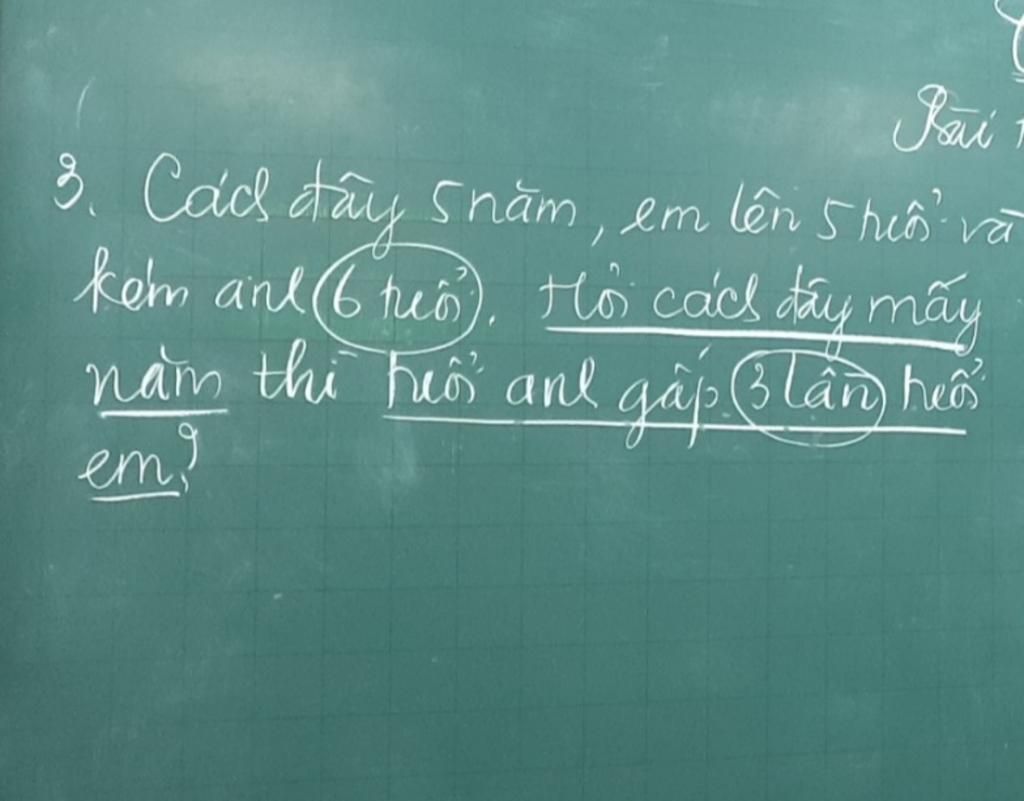 Bài
3. Cách đây 5 năm, em lên 5 tuổi và
kém anh 6 tuổi. Hỏi cách đây mấy
năm thì tuổi anh gấp 3 lần tuổi
em?